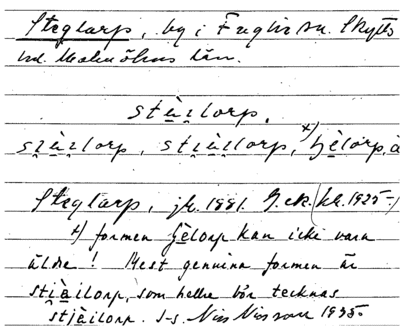 Steglarp, by i Fuglie sn. Skytts
hd. Malmöhus län.
stàilorp.
stàilorp, stiàilorp, x) hèlorp, à
Steglarp, jk. 1881. J.ek. (kl. 1925-)
x) formen hèlorp kan icke vara
äldre! Mest genuina formen är
stiàilorp, som hellre bör tecknas
stjàilorp. I-s. Nils Nilsson 1935-